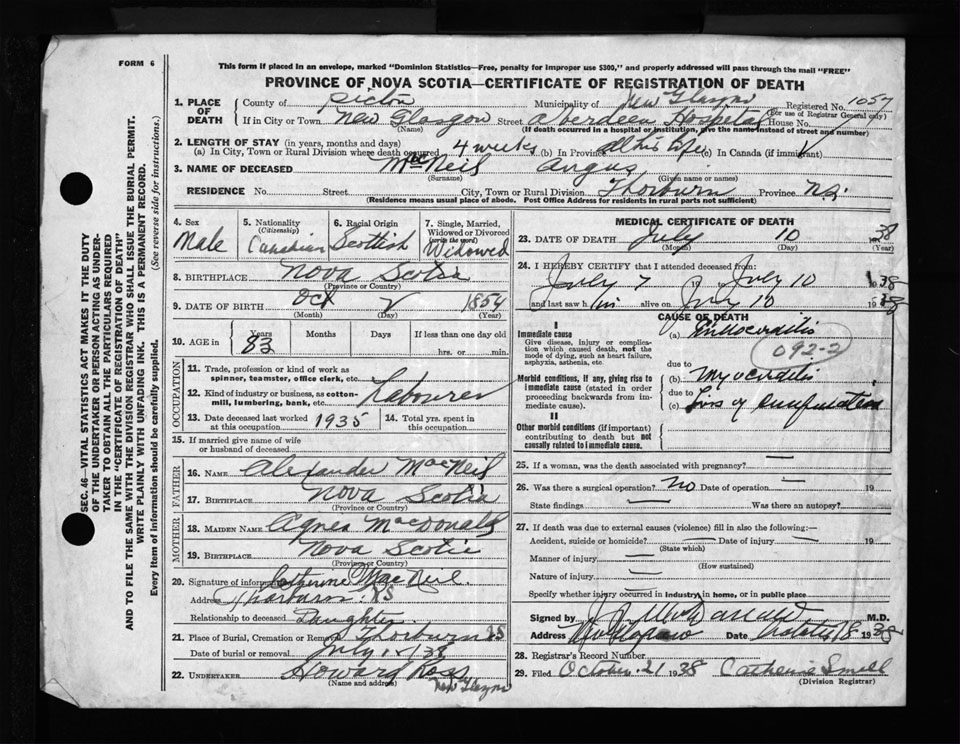 FORM 6
This form if placed in an envelope, marked "Dominion Statistics—Free, penalty for improper use $300," and properly addressed will pass through the mail "FREE"
PROVINCE OF NOVA SCOTIA—CERTIFICATE OF REGISTRATION OF DEATH
1. PLACE OF DEATH County of Pictou Municipality of New Glasgow Registered No. 1057
(For use of Registrar General only)
If in City or Town New Glasgow Street Aberdeen Hospital House No.
(Name) (If death occurred in a hospital or institution, give the name instead of street and number)
2. LENGTH OF STAY (in years, months and days)
(a) In City, Town or Rural Division where death occurred 4 weeks (b) In Province all his life (c) In Canada (if immigrant)
3. NAME OF DECEASED MacNeil Angus
(Surname) (Given name or names)
RESIDENCE No. Street City, Town or Rural Division Thorburn Province N.S.
(Residence means usual place of abode. Post Office Address for residents in rural parts not sufficient)
4. Sex Male
5. Nationality (Citizenship) Canadian
6. Racial Origin Scottish
7. Single, Married, Widowed or Divorced (write the word) Widowed
8. BIRTHPLACE Nova Scotia
(Province or Country)
9. DATE OF BIRTH Oct 1854
(Month) (Day) (Year)
10. AGE in Years 83 Months Days If less than one day old
hrs. or min.
OCCUPATION
11. Trade, profession or kind of work as spinner, teamster, office clerk, etc.
12. Kind of industry or business, as cotton-mill, lumbering, bank, etc. Labourer
13. Date deceased last worked at this occupation 1935
14. Total yrs. spent in this occupation
15. If married give name of wife or husband of deceased
FATHER
16. NAME Alexander MacNeil
17. BIRTHPLACE Nova Scotia
(Province or Country)
MOTHER
18. MAIDEN NAME Agnes MacDonald
19. BIRTHPLACE Nova Scotia
(Province or Country)
20. Signature of informant Catherine MacNeil
Address Thorburn N.S
Relationship to deceased Daughter
21. Place of Burial, Cremation or Removal Thorburn NS
Date of burial or removal July 38
22. UNDERTAKER Howard Ross
(Name and address) New Glasgow
MEDICAL CERTIFICATE OF DEATH
23. DATE OF DEATH July 10 1938
(Month) (Day) (Year)
24. I HEREBY CERTIFY that I attended deceased from:
July 7 19 to July 10 1938
and last saw him alive on July 10 1938
CAUSE OF DEATH
I
Immediate cause
Give disease, injury or complication which caused death, not the mode of dying, such as heart failure, asphyxia, asthenia, etc.
(a) Endocarditis
092-2
due to
Morbid conditions, if any, giving rise to immediate cause (stated in order proceeding backwards from immediate cause).
(b) Myocarditis
due to
(c) Loss of Compensation
II
Other morbid conditions (if important) contributing to death but not causally related to immediate cause.
25. If a woman, was the death associated with pregnancy? —
26. Was there a surgical operation? no Date of operation —
State findings — Was there an autopsy?
27. If death was due to external causes (violence) fill in also the following:—
Accident, suicide or homicide? — Date of injury — 19
(State which)
Manner of injury —
(How sustained)
Nature of injury —
Specify whether injury occurred in industry, in home, or in public place
Signed by M.D.
Address New Glasgow Date October 18 1938
28. Registrar's Record Number
29. Filed October 21 1938 Catherine Small
(Division Registrar)
SEC. 46—VITAL STATISTICS ACT MAKES IT THE DUTY
OF THE UNDERTAKER OR PERSON ACTING AS UNDER-
TAKER TO OBTAIN ALL THE PARTICULARS REQUIRED
IN THE "CERTIFICATE OF REGISTRATION OF DEATH"
AND TO FILE THE SAME WITH THE DIVISION REGISTRAR WHO SHALL ISSUE THE BURIAL PERMIT.
WRITE PLAINLY WITH UNFADING INK. THIS IS A PERMANENT RECORD.
Every item of information should be carefully supplied. (See reverse side for instructions.)